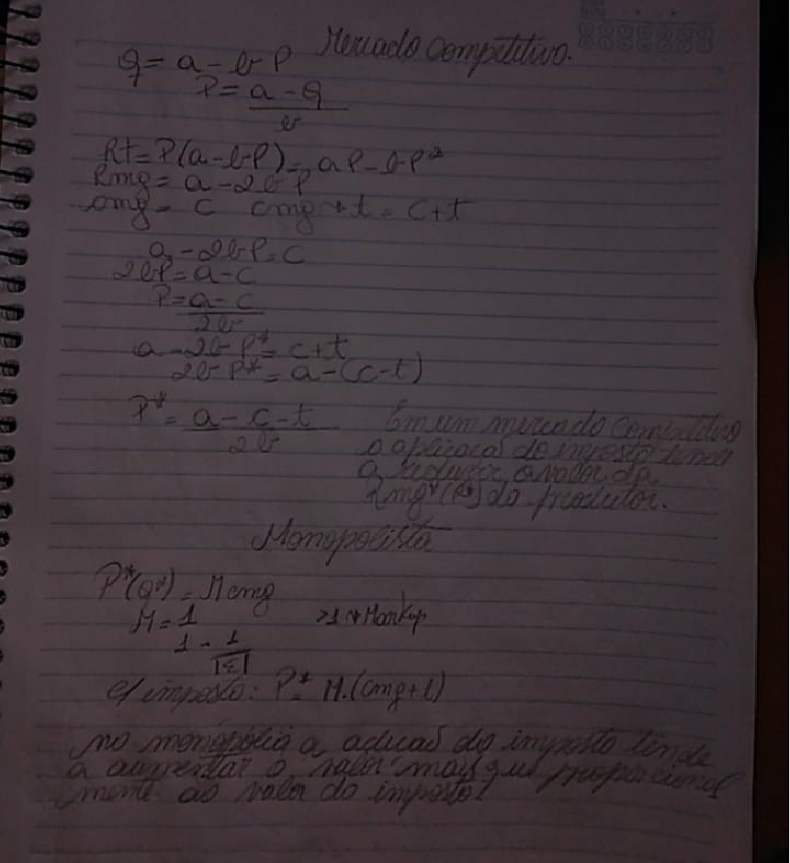 Mercado Competitivo.
Q = a - bP
P = a - Q
b
Rt = P(a - bP) = aP - bP²
Rmg = a - 2bP
cmg = c cmg + t = c + t
a - 2bP = c
2bP = a - c
P = a - c
2b
a - 2bP* = c + t
2bP* = a - (c - t)
P* = a - c - t
2b
Em um mercado competitivo
a aplicação do imposto tende
a reduzir o valor da
Rmg (P*) do produtor.
Monopolista
P*(Q*) = M cmg
M = 1 >1 → Markup
1 - 1
|Ɛ|
c/ imposto: P* = M.(cmg + t)
no monopólio a adicaõ do imposto tende
a aumentar o valor mais que proporcional
mente ao valor do imposto.